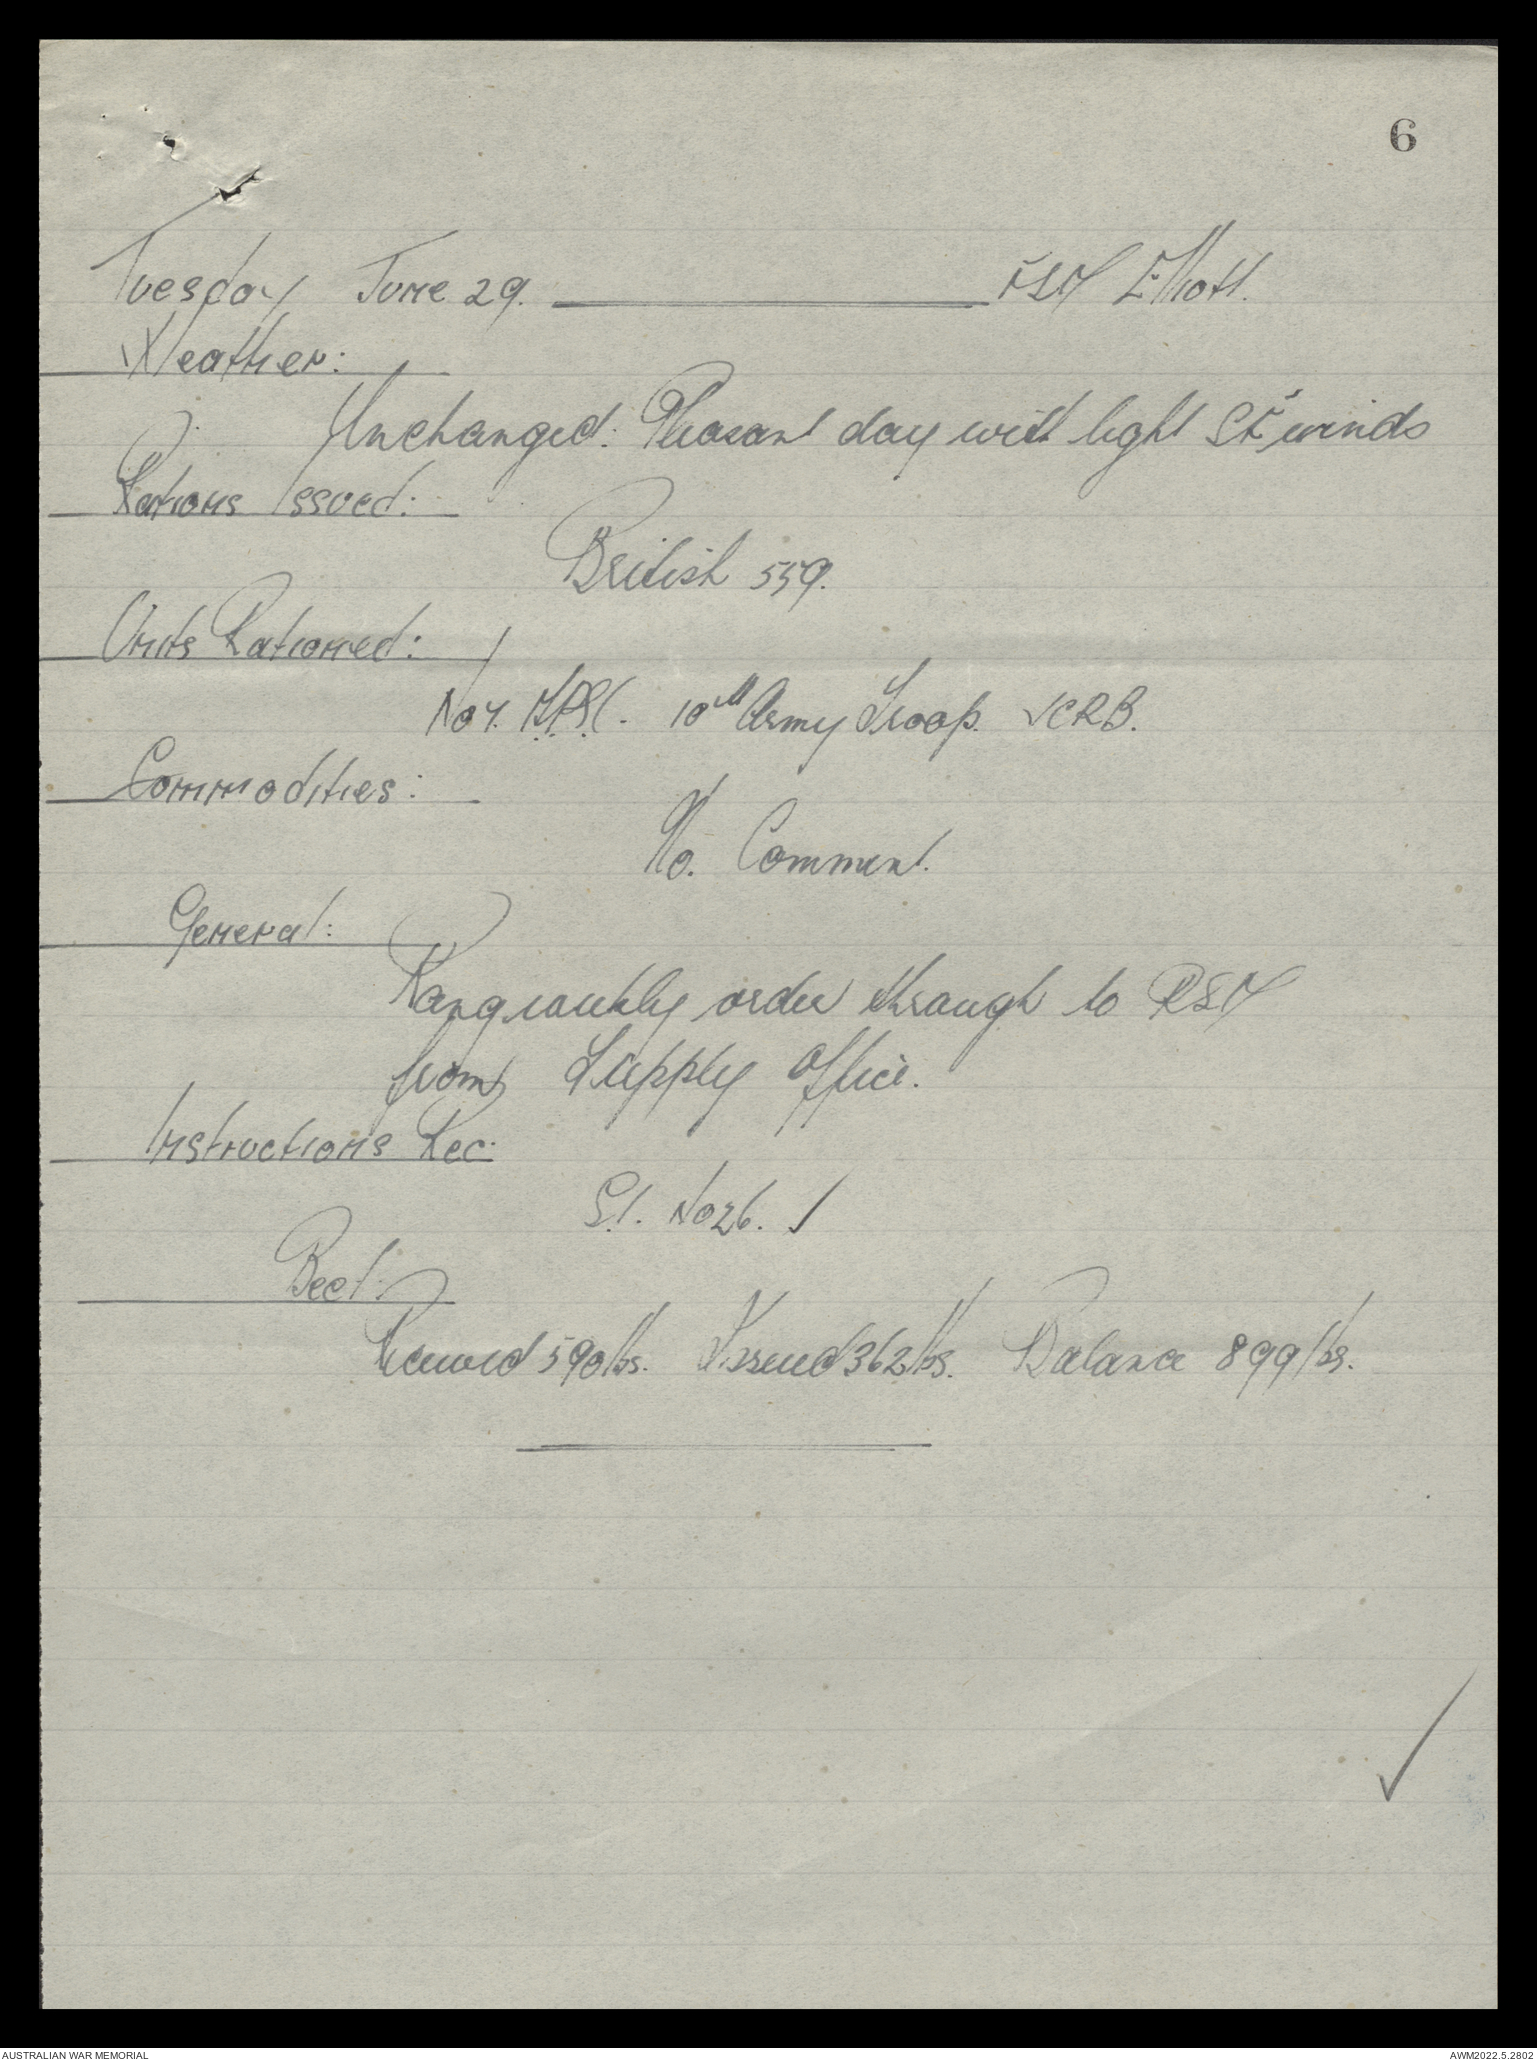 6
Tuesday June 29. FSM Elliott.
Weather:
Unchanged: Pleasant day with light SE winds
Rations Issued:
British 559.
Units Rationed:
No 10th Army Troop. CRB.
Commodities:
No. Comment.
General:
order through to RSM
from Supply Office.
Instructions Rec:
S.I. No 26.
Beef:
Received 590 lbs. Issued 362 lbs. Balance 899 lbs.
AUSTRALIAN WAR MEMORIAL AWM2022.5.2802